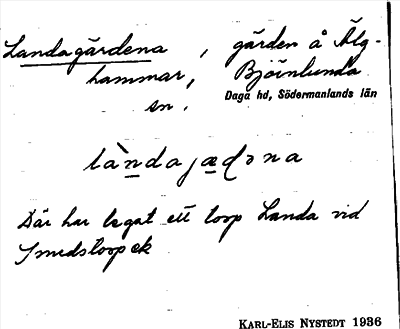 Landagärdena, gärden å Älg-
hammar, Björnlunda
sn. Daga hd, Södermanlands län
la`ndajæḍəna
Där har legat ett torp Landa vid
Smedstorp ek
KARL-ELIS NYSTEDT 1936